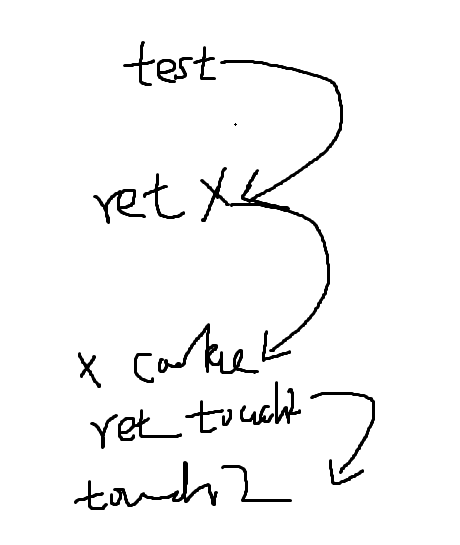 test
ret X
x cookie
ret touch2
touch2